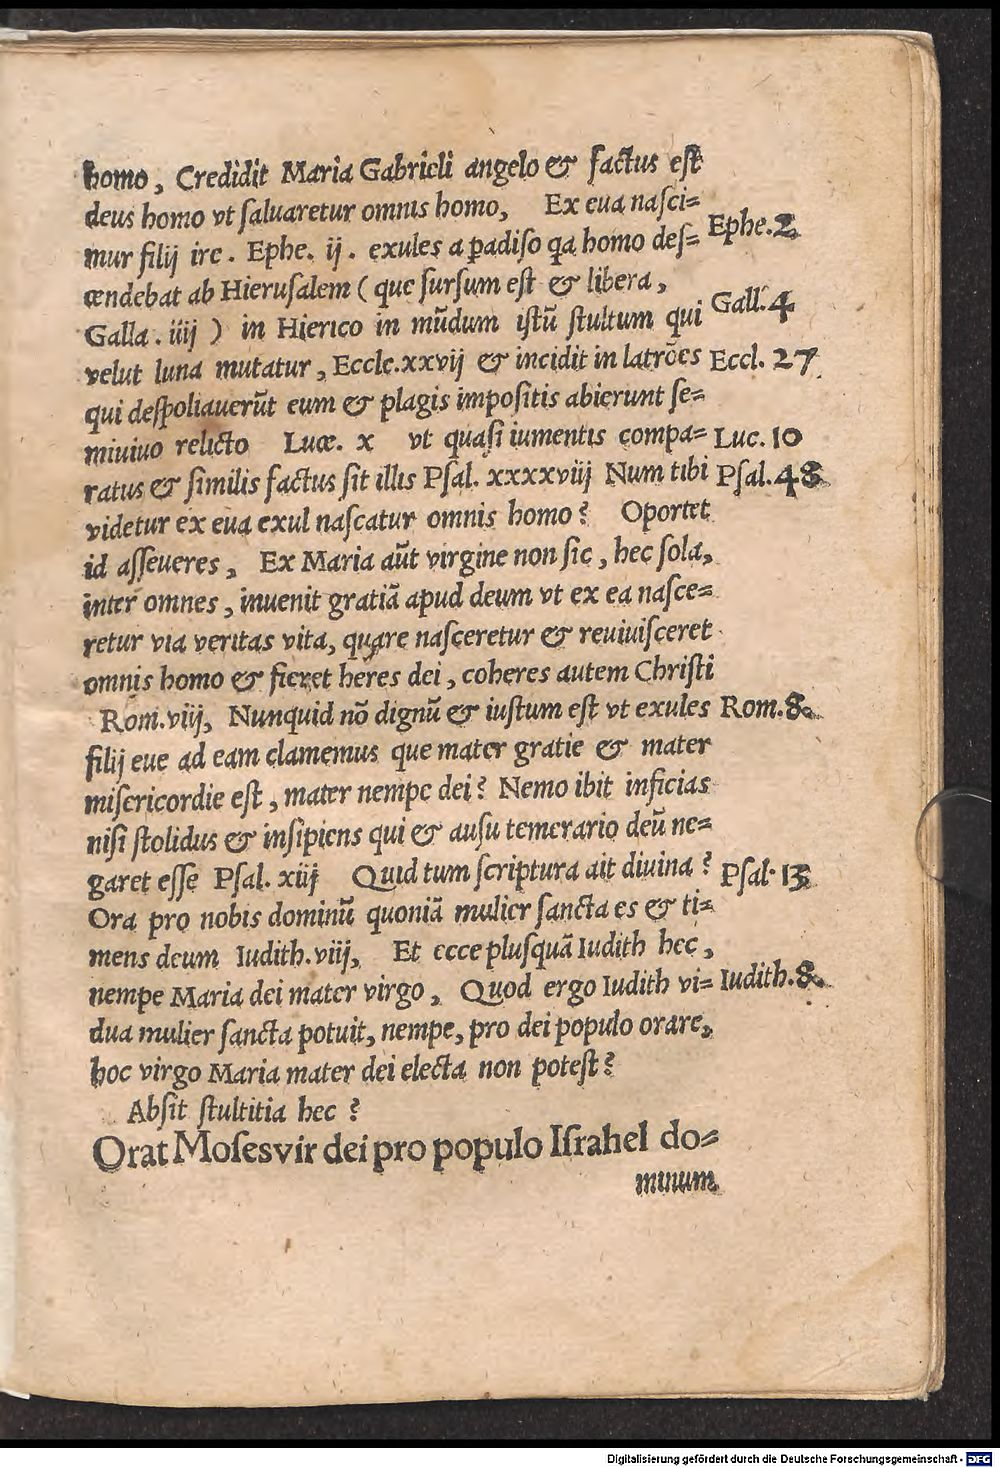 homo, Credidit Maria Gabrieli angelo & factus est
deus homo vt saluaretur omnis homo, Ex eua nasci=
mur filij ire. Ephe. ij. exules a padiso qa homo des= Ephe.2
cendebat ab Hierusalem (que sursum est & libera,
Galla. iiij) in Hierico in mūdum istū stultum qui Gall.4
velut luna mutatur, Eccle.xxvij & incidit in latrōes Eccl. 27
qui despoliauerūt eum & plagis impositis abierunt se=
miuiuo relicto Luce. x vt quasi iumentis compa= Luc. 10
ratus & similis factus sit illis Psal. xxxxviij Num tibi Psal.48
videtur ex eua exul nascatur omnis homo? Oportet
id asseueres, Ex Maria aūt virgine non sic, hec sola,
inter omnes, inuenit gratiā apud deum vt ex ea nasce=
retur via veritas vita, quare nasceretur & reuiuisceret
omnis homo & fieret heres dei, coheres autem Christi
Rom.viij, Nunquid nō dignū & iustum est vt exules Rom.8.
filij eue ad eam clamemus que mater gratie & mater
misericordie est, mater nempe dei? Nemo ibit inficias
nisi stolidus & insipiens qui & ausu temerario deū ne=
garet esse Psal. xiij Quid tum scriptura ait diuina? Psal. 13
Ora pro nobis dominū quoniā mulier sancta es & ti=
mens deum Iudith.viij, Et ecce plusquā Iudith hec,
nempe Maria dei mater virgo, Quod ergo Iudith vi= Iudith.8.
dua mulier sancta potuit, nempe, pro dei populo orare,
hoc virgo Maria mater dei electa non potest?
Absit stultitia hec?
Orat Moses vir dei pro populo Israhel do=
minum
Digitalisierung gefördert durch die Deutsche Forschungsgemeinschaft - DFG